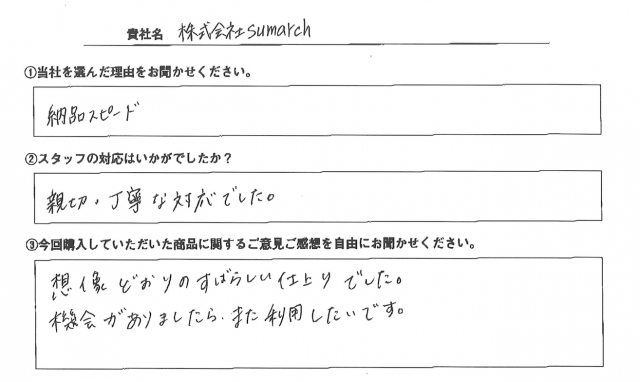 貴社名 株式会社sumarch
①当社を選んだ理由をお聞かせください。
納品スピード
②スタッフの対応はいかがでしたか?
親切・丁寧な対応でした。
③今回購入していただいた商品に関するご意見ご感想を自由にお聞かせください。
想像どおりのすばらしい仕上りでした。
機会がありましたら、また利用したいです。